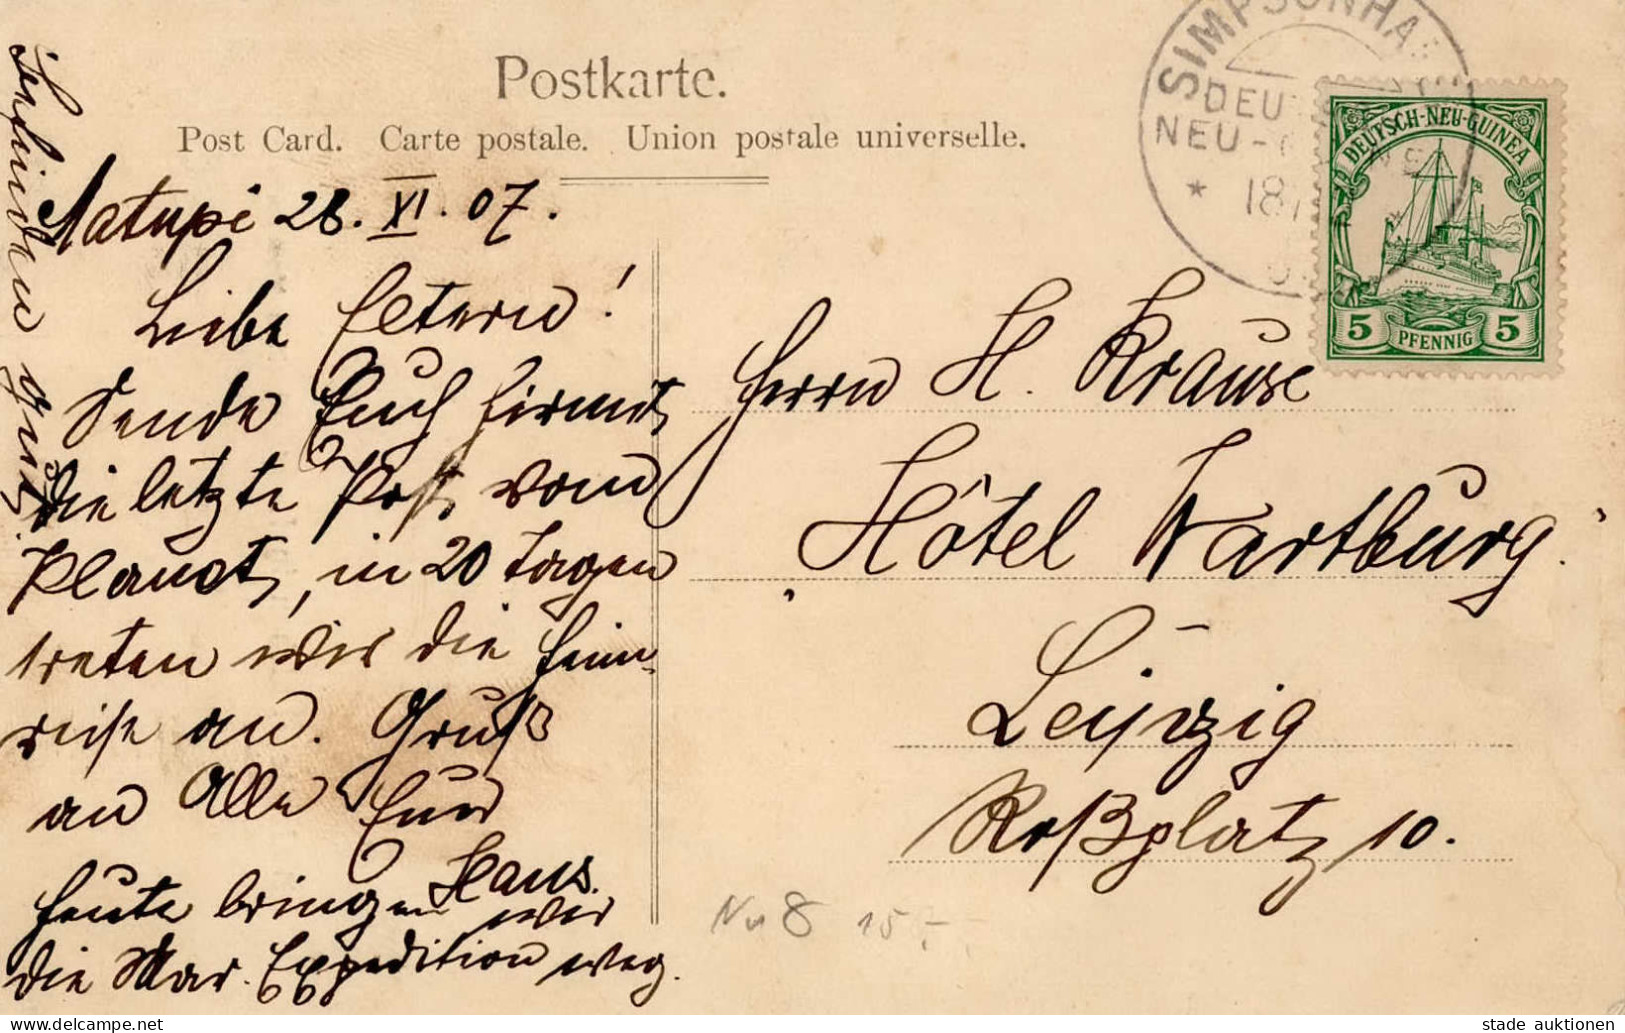 Postkarte.
Post Card. Carte postale. Union postale universelle.
SIMPSONHA
DEU
NEU-
* 18
DEUTSCH-NEU-GUINEA
5 PFENNIG 5
Matupi 28. XI. 07.
Liebe Eltern!
Sende Euch hiermit
die letzte Post vom
Planet, in 20 Tagen
treten wir die Heim-
reise an. Gruß
an Alle Euer
Hans.
heute bringen wir
die Mar. Expedition weg.
Herrn H. Krause
Hôtel Wartburg
Leipzig
Roßplatz 10.
8 15.-
stade auktionen